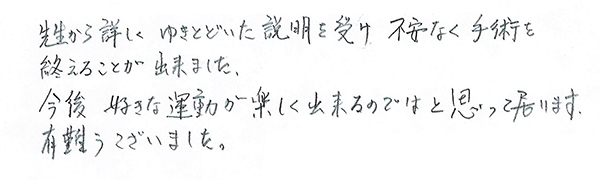 先生から詳しく ゆきとどいた説明を受け 不安なく手術を
終えることが出来ました、
今後 好きな運動が楽しく出来るのではと思って居ります、
有難うございました。